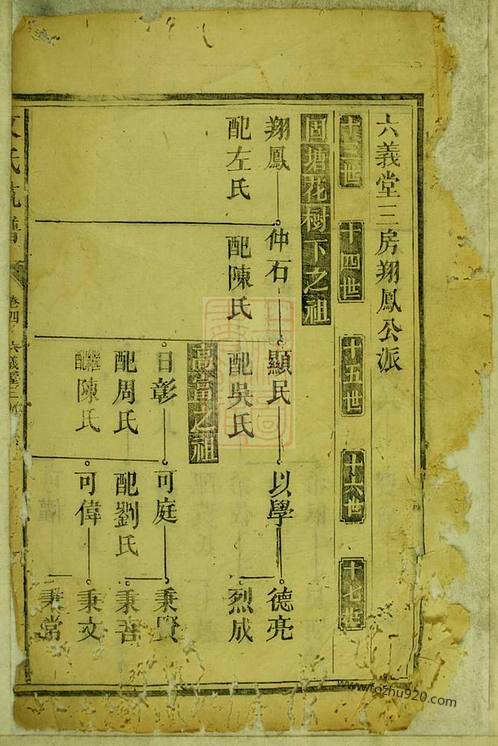 六義堂三房翔鳳公派
十三世 十四世 十五世 十六世 十七世
固塘花樹下之祖
翔鳳 仲石 顯民 以學 德亮
配左氏 配陳氏 配吳氏 烈成
之祖
日彰 可庭 秉賢
配周氏 配劉氏 秉吾
陳氏 可偉 秉文
秉常
氏 譜
卷四 六義堂三
www.fozhu920.com